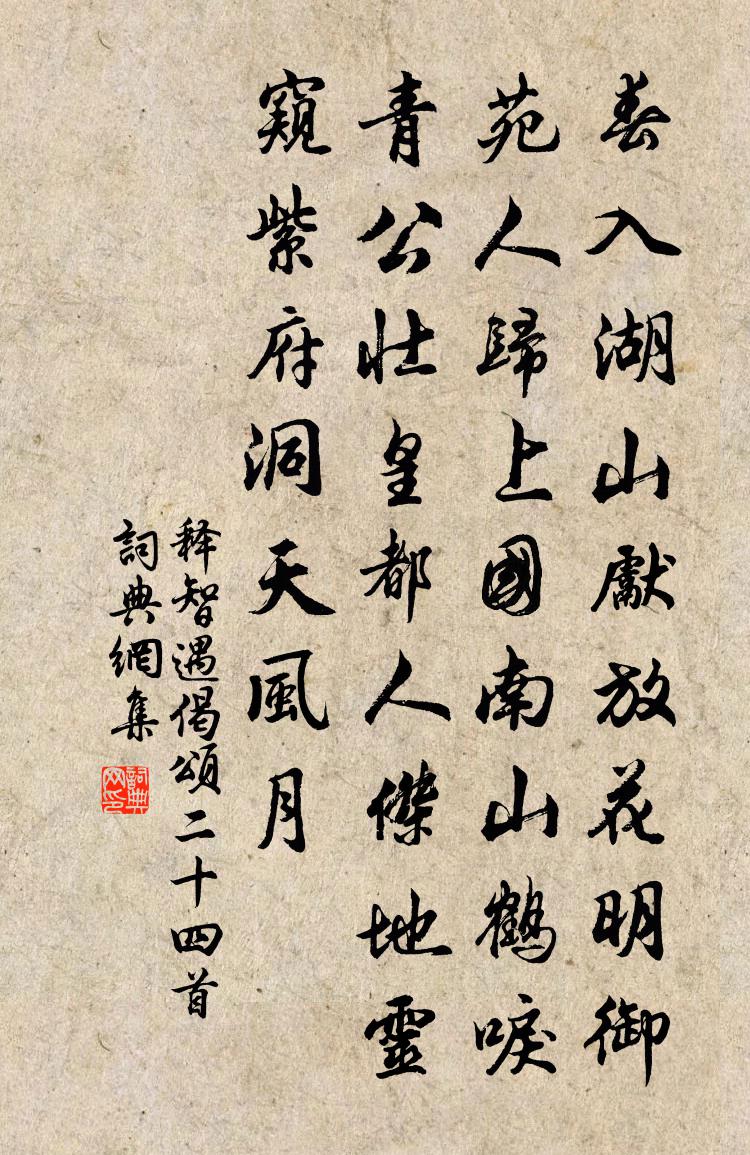 春入湖山獻放花明御
苑人歸上國南山鶴唳
青公壯皇都人傑地靈
窺紫府洞天風月
释智遇偈頌二十四首
詞典網集
詞典网印